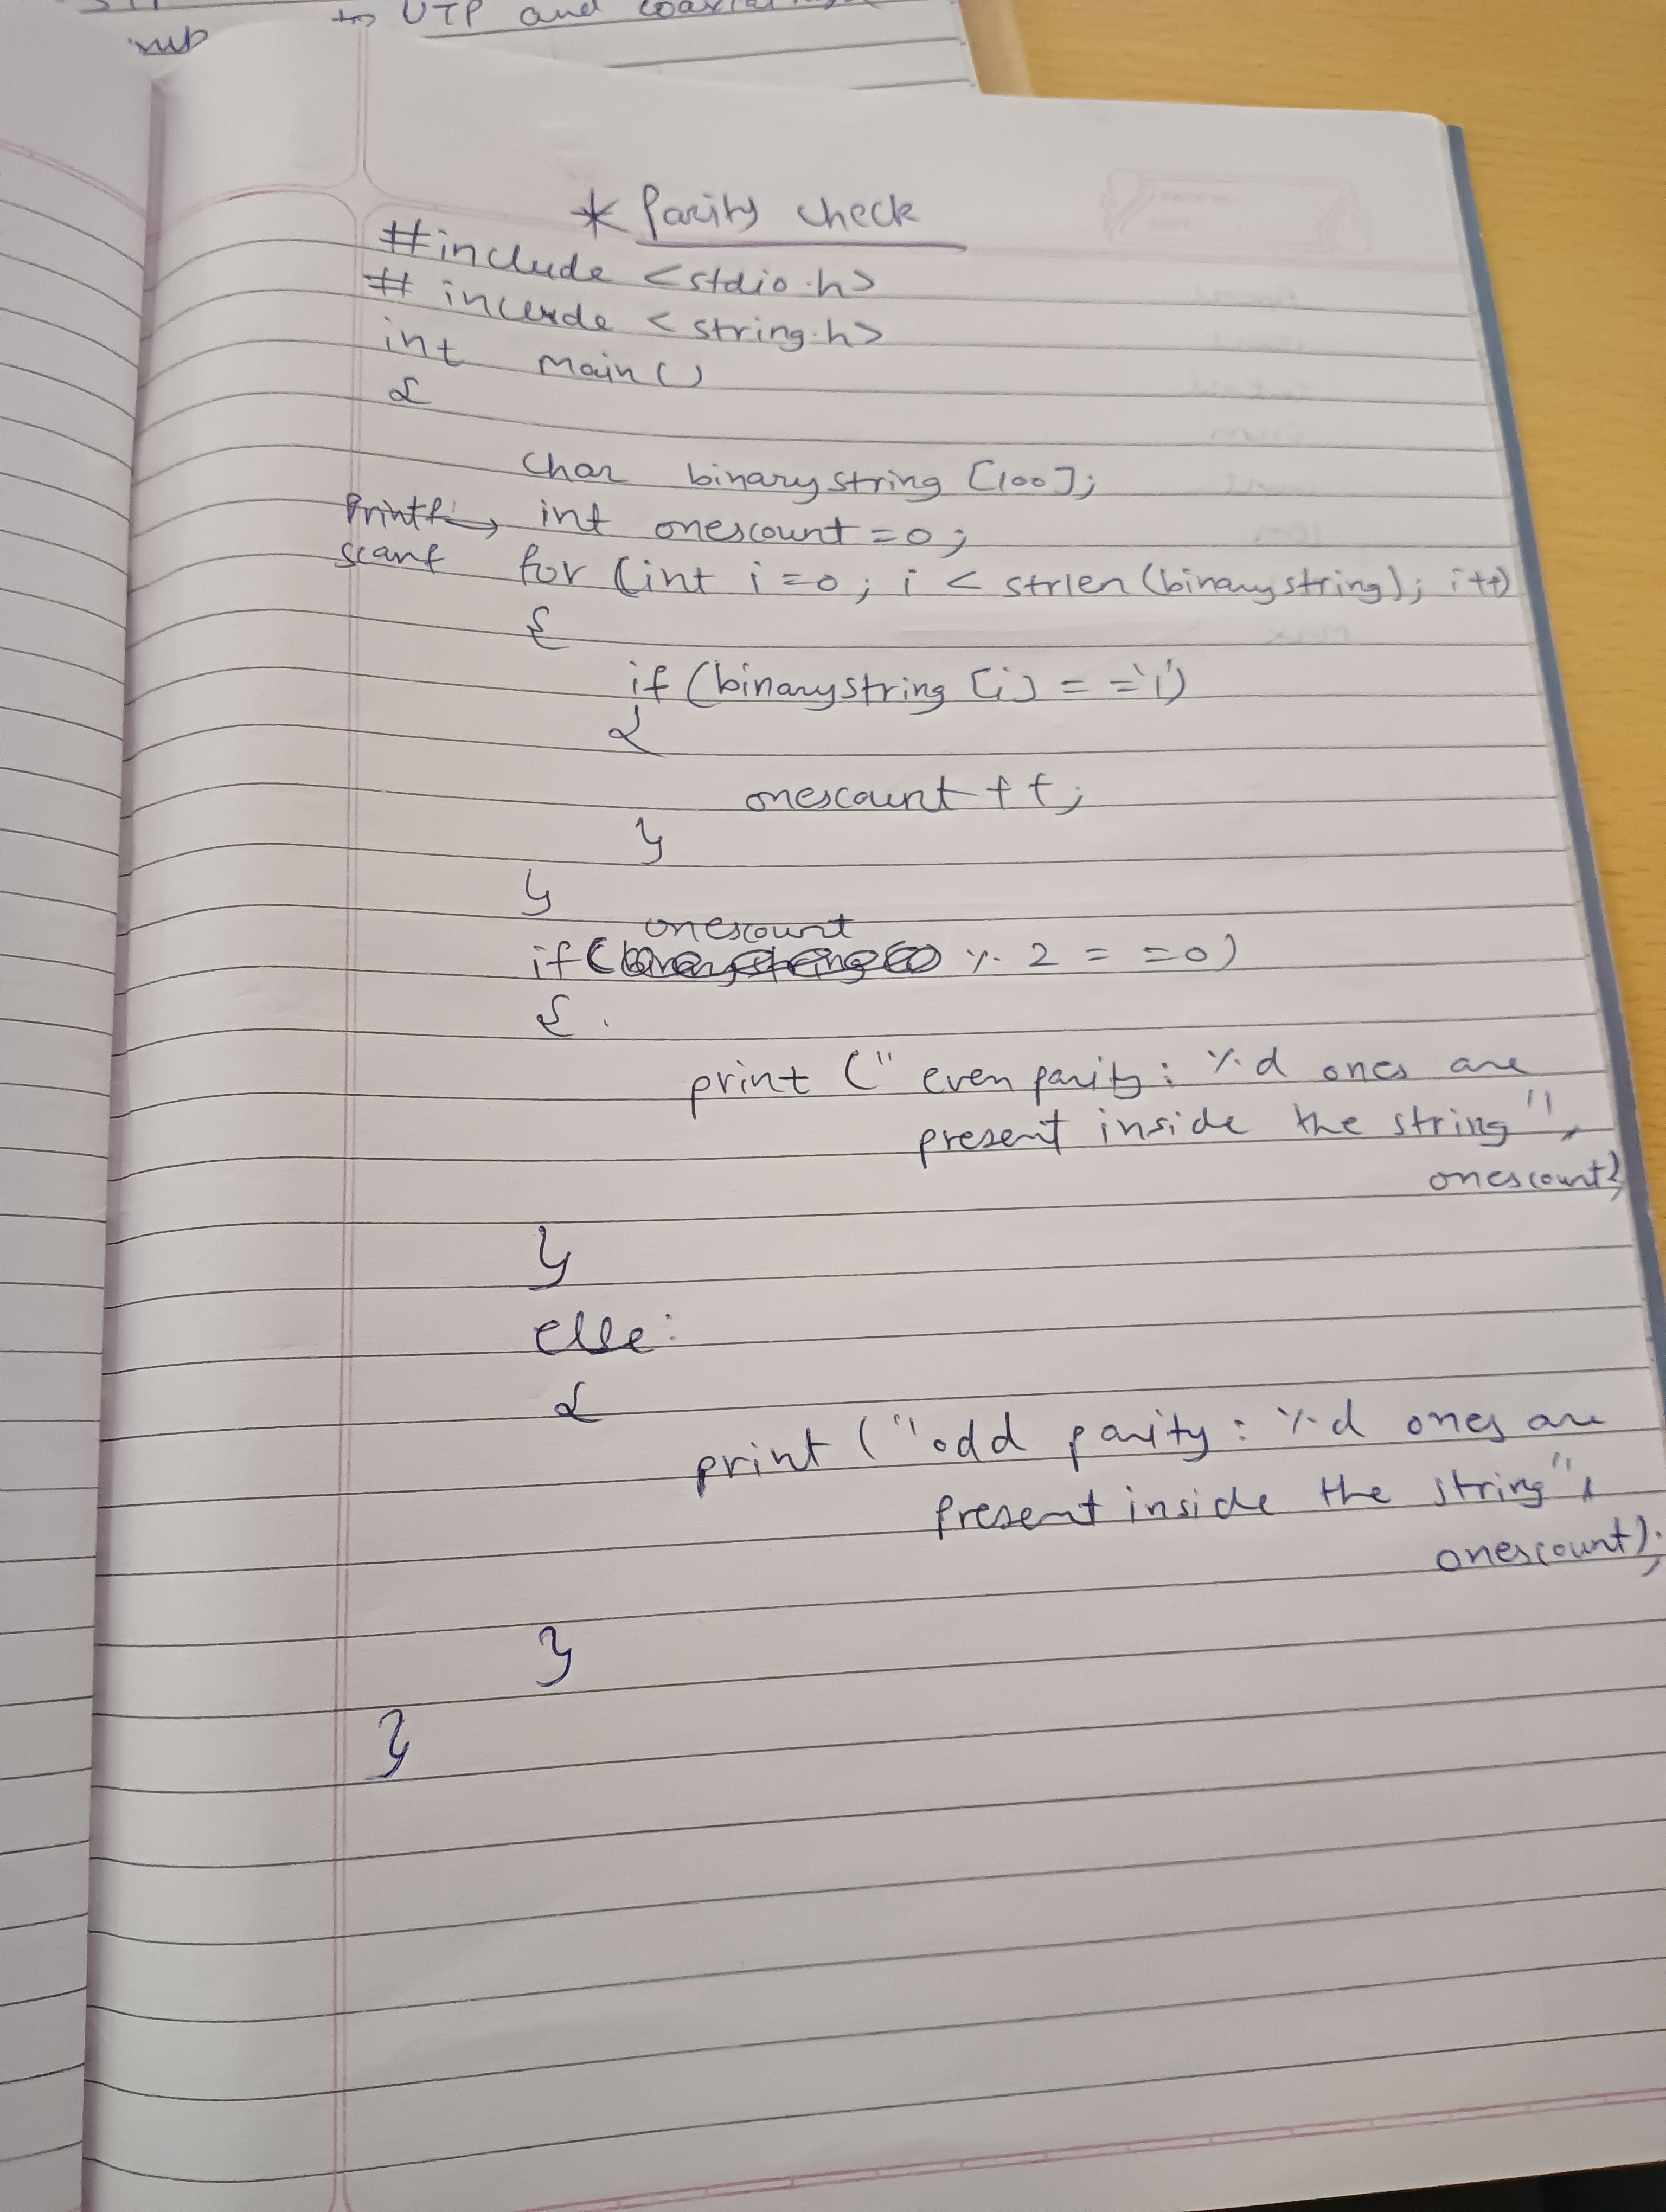 to UTP and coaxial
* Parity check
#include <stdio.h>
# include <string.h>
int main()
{
char binarystring [100];
Printf → int onescount = 0;
scanf for (int i = 0; i < strlen (binarystring); i++)
{
if (binarystring [i] = = '1')
{
onescount ++;
}
}
onescount
if ( % 2 = = 0)
{
print (" even parity : %d ones are
present inside the string",
onescount)
}
else:
{
print ("odd parity : %d ones are
present inside the string",
onescount);
}
}